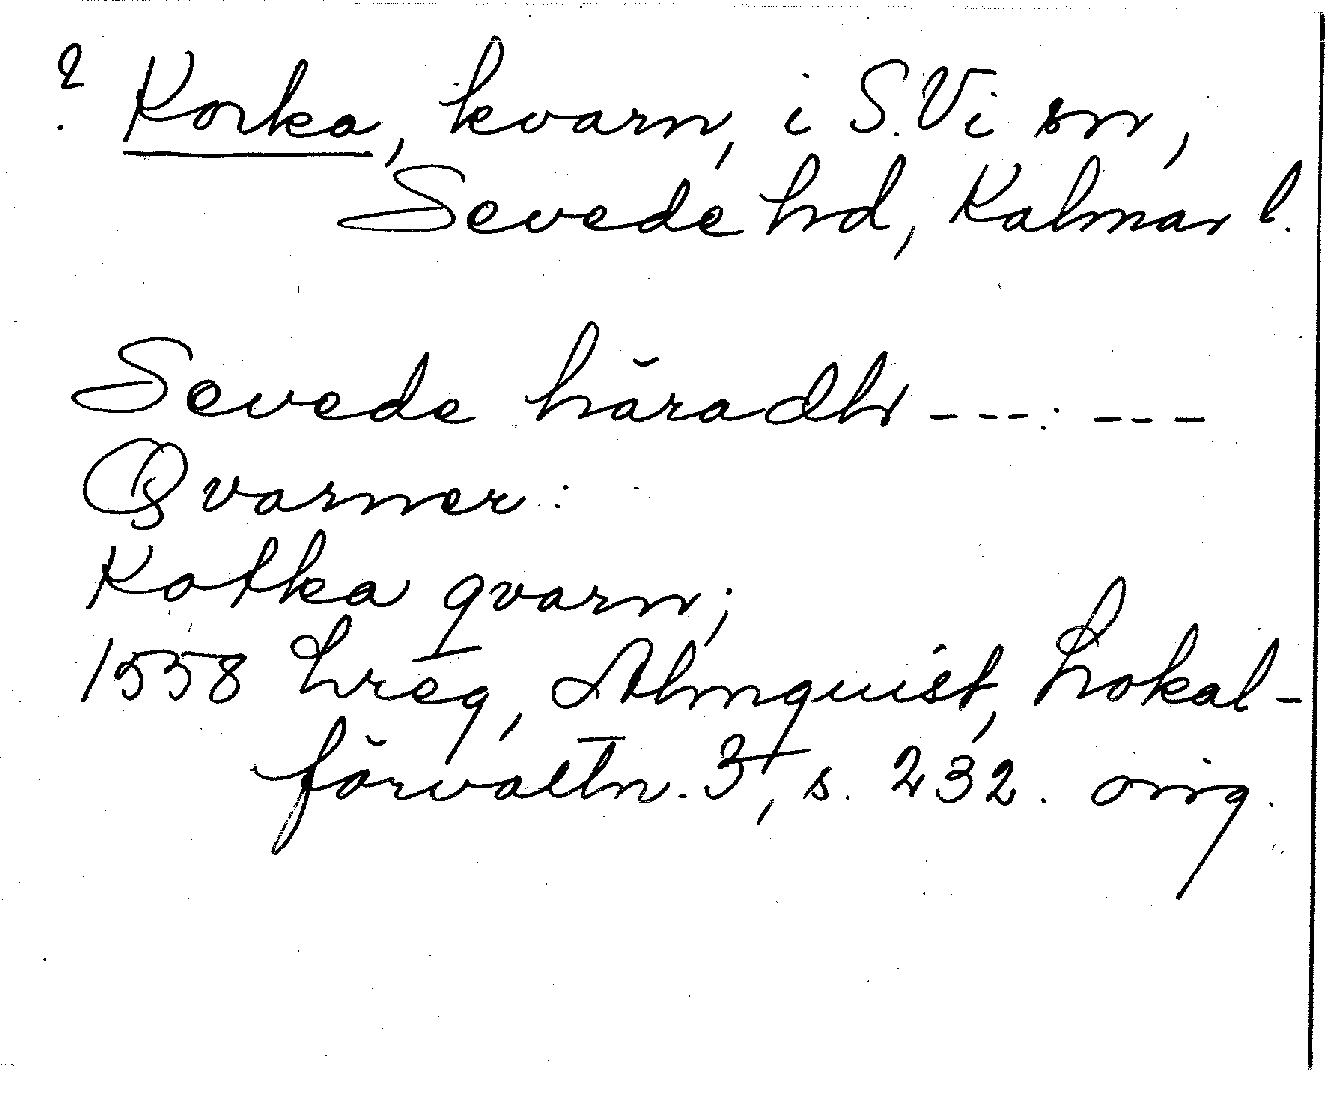 ? Korka, kvarn, i S.Vi sn,
Sevede hd, Kalmar l.
Sevede häradh --- ---
Qvarner:
Kotka qvarn;
1558 Lreg, Almquist, Lokal-
förvaltn. 3, s. 232. orig.